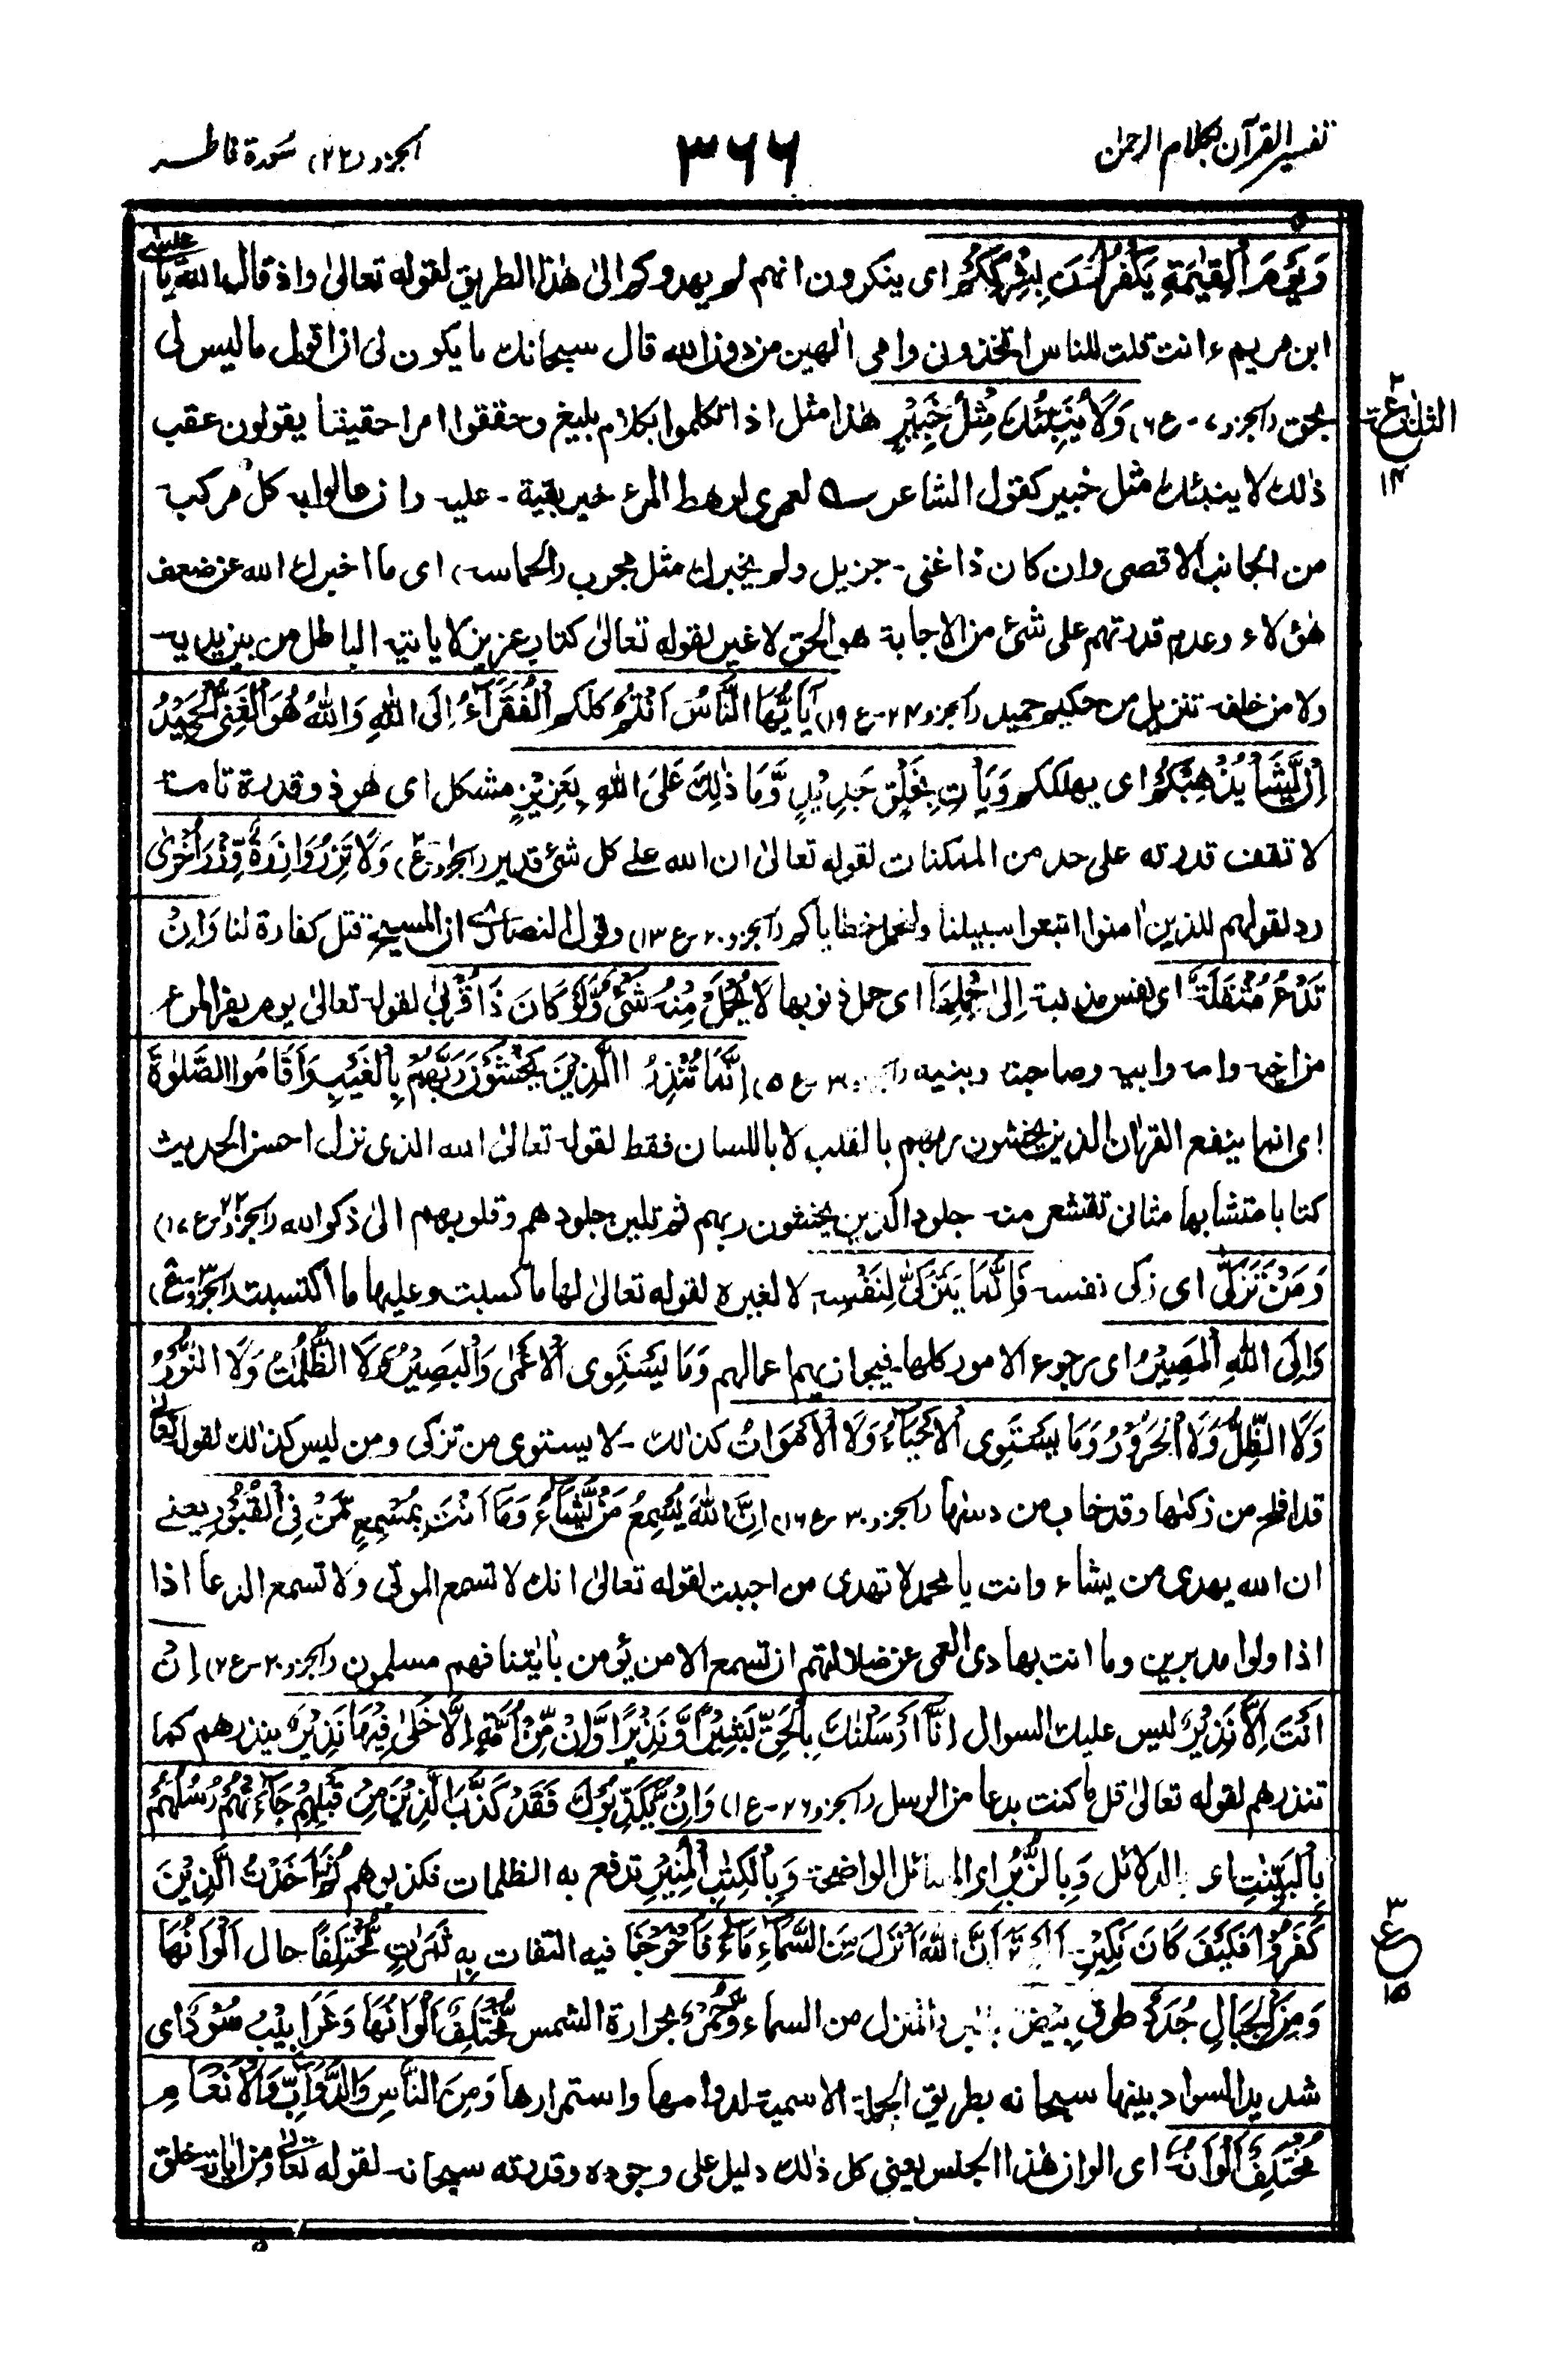 تفسير القرآن بكلام الرحمٰن
٣٦٦
الجزو (٢٢) سُورة فاطر
وَيَوْمَ الْقِيٰمَةِ يَكْفُرُوْنَ بِشِرْكِكُمْ اى ينكرون انهم لم يهدوكم الىٰ هٰذا الطريق لقوله تعالىٰ واذ قال الله يا عيسى
ابن مريم ءانت قلت للناس اتخذونى وامى الٰهين من دون الله قال سبحانك ما يكون لى ان اقول ما ليس لى
بحق (الجزو ٧-ع ٦) وَلَا يُنَبِّئُكَ مِثْلُ خَبِيْرٍ هٰذا مثل اذا تكلموا بكلام بليغ وحققوا امرا حقيقتا يقولون عقب
ذٰلك لا ينبئك مثل خبير كقول الشاعر ؎ لعمرى لرهط المرء خير بقية - عليه وان عالوا به كل مركب
من الجانب الاقصى وان كان ذا غنى - جزيل ولم يخبرك مثل مجرب (الحماسه) اى ما اخبرك الله عن ضعف
هٰؤلاء وعدم قدرتهم على شئ من الاجابة هو الحق لا غير لقوله تعالىٰ كتاب عزيز لا ياتيه الباطل من بين يديه
ولا من خلفه تنزيل من حكيم حميد (الجزو ٢٤-ع ١٩) يٰٓاَيُّهَا النَّاسُ اَنْتُمُ كلكم الْفُقَرَآءُ اِلَى اللهِ وَاللهُ هُوَ الْغَنِىُّ الْحَمِيْدُ
اِنْ يَّشَاْ يُذْهِبْكُمْ اى يهلككم وَيَاْتِ بِخَلْقٍ جَدِيْدٍ وَّمَا ذٰلِكَ عَلَى اللهِ بِعَزِيْزٍ مشكل اى هو ذو قدرة تامة
لا تقف قدرته على حد من الممكنات لقوله تعالىٰ ان الله على كل شئ قدير وَلَا تَزِرُ وَازِرَةٌ وِّزْرَ اُخْرٰى
رد لقولهم للذين اٰمنوا اتبعوا سبيلنا ولنحمل خطاياكم (الجزو ٢٠-ع ١٣) وقول النصارٰى ان المسيح قتل كفارة لنا وَاِنْ
تَدْعُ مُثْقَلَةٌ اى نفس مذنبة اِلىٰ حِمْلِهَا اى حمل ذنوبها لَا يُحْمَلْ مِنْهُ شَىْءٌ وَّلَوْ كَانَ ذَا قُرْبىٰ لقوله تعالىٰ يوم يفر المرء
من اخيه وامه وابيه وصاحبته وبنيه (الجزو ٣٠-ع ٥) اِنَّمَا تُنْذِرُ الَّذِيْنَ يَخْشَوْنَ رَبَّهُمْ بِالْغَيْبِ وَاَقَامُوا الصَّلٰوةَ
اى انما ينفع القراٰن الذين يخشون ربهم بالقلب لا باللسان فقط لقوله تعالىٰ الله الذى نزل احسن الحديث
كتابا متشابها مثانى تقشعر منه جلود الذين يخشون ربهم ثم تلين جلودهم وقلوبهم الىٰ ذكر الله (الجزو ٢٣-ع ١٧)
وَمَنْ تَزَكّٰى اى زكى نفسه فَاِنَّمَا يَتَزَكّٰى لِنَفْسِهٖ لا لغيره لقوله تعالىٰ لها ما كسبت وعليها ما اكتسبت
وَاِلَى اللهِ الْمَصِيْرُ اى رجوع الامور كلها فيجازيهم اعمالهم وَمَا يَسْتَوِى الْاَعْمٰى وَالْبَصِيْرُ وَلَا الظُّلُمٰتُ وَلَا النُّوْرُ
وَلَا الظِّلُّ وَلَا الْحَرُوْرُ وَمَا يَسْتَوِى الْاَحْيَآءُ وَلَا الْاَمْوَاتُ كذالك - لا يستوى من تزكى ومن ليس كذالك لقوله تعالىٰ
قد افلح من زكٰىها وقد خاب من دسٰىها (الجزو ٣٠-ع ١٦) اِنَّ اللهَ يُسْمِعُ مَنْ يَّشَآءُ وَمَا اَنْتَ بِمُسْمِعٍ مَّنْ فِى الْقُبُوْرِ يعنى
ان الله يهدى من يشاء وانت يا محمد لا تهدى من احببت لقوله تعالىٰ انك لا تسمع الموتى ولا تسمع الدعا اذا
اذا ولوا مدبرين وما انت بهادى العمى عن ضلالتهم ان تسمع الا من يؤمن باٰيٰتنا فهم مسلمون (الجزو ٢٠-ع ٢) اِنْ
اَنْتَ اِلَّا نَذِيْرٌ ليس عليك السوال اِنَّا اَرْسَلْنٰكَ بِالْحَقِّ بَشِيْرًا وَّنَذِيْرًا وَّاِنْ مِّنْ اُمَّةٍ اِلَّا خَلٰى فِيْهَا نَذِيْرٌ ينذرهم كما
تنذرهم لقوله تعالىٰ قل ما كنت بدعا من الرسل (الجزو ٢٦-ع ١) وَاِنْ يُّكَذِّبُوْكَ فَقَدْ كَذَّبَ الَّذِيْنَ مِنْ قَبْلِهِمْ جَآءَتْهُمْ رُسُلُهُمْ
بِالْبَيِّنٰتِ اى بالدلائل وَبِالزُّبُرِ اى المسائل الواضحة وَبِالْكِتٰبِ الْمُنِيْرِ تدفع به الظلمات فكذبوهم ثُمَّ اَخَذْتُ الَّذِيْنَ
كَفَرُوْا فَكَيْفَ كَانَ نَكِيْرِ اَلَمْ تَرَ اَنَّ اللهَ اَنْزَلَ مِنَ السَّمَآءِ مَآءً فَاَخْرَجْنَا فيه التفات بِهٖ ثَمَرٰتٍ مُّخْتَلِفًا حال اَلْوَانُهَا
وَمِنَ الْجِبَالِ جُدَدٌ طرق بِيْضٌ بالبرد المنزل من السماء وَّحُمْرٌ بحرارة الشمس مُّخْتَلِفٌ اَلْوَانُهَا وَغَرَابِيْبُ سُوْدٌ اى
شديد السواد بينها سبحانه بطريق الجملة الاسمية لدوامها واستمرارها وَمِنَ النَّاسِ وَالدَّوَآبِّ وَالْاَنْعَامِ
مُخْتَلِفٌ اَلْوَانُهٗ اى الوان هٰذا الجنس يعنى كل ذٰلك دليل على وجوده وقدرته سبحانه لقوله تعالىٰ ومن اٰياته خلق
الثلث
ع
١٤
٣
ع
١٥